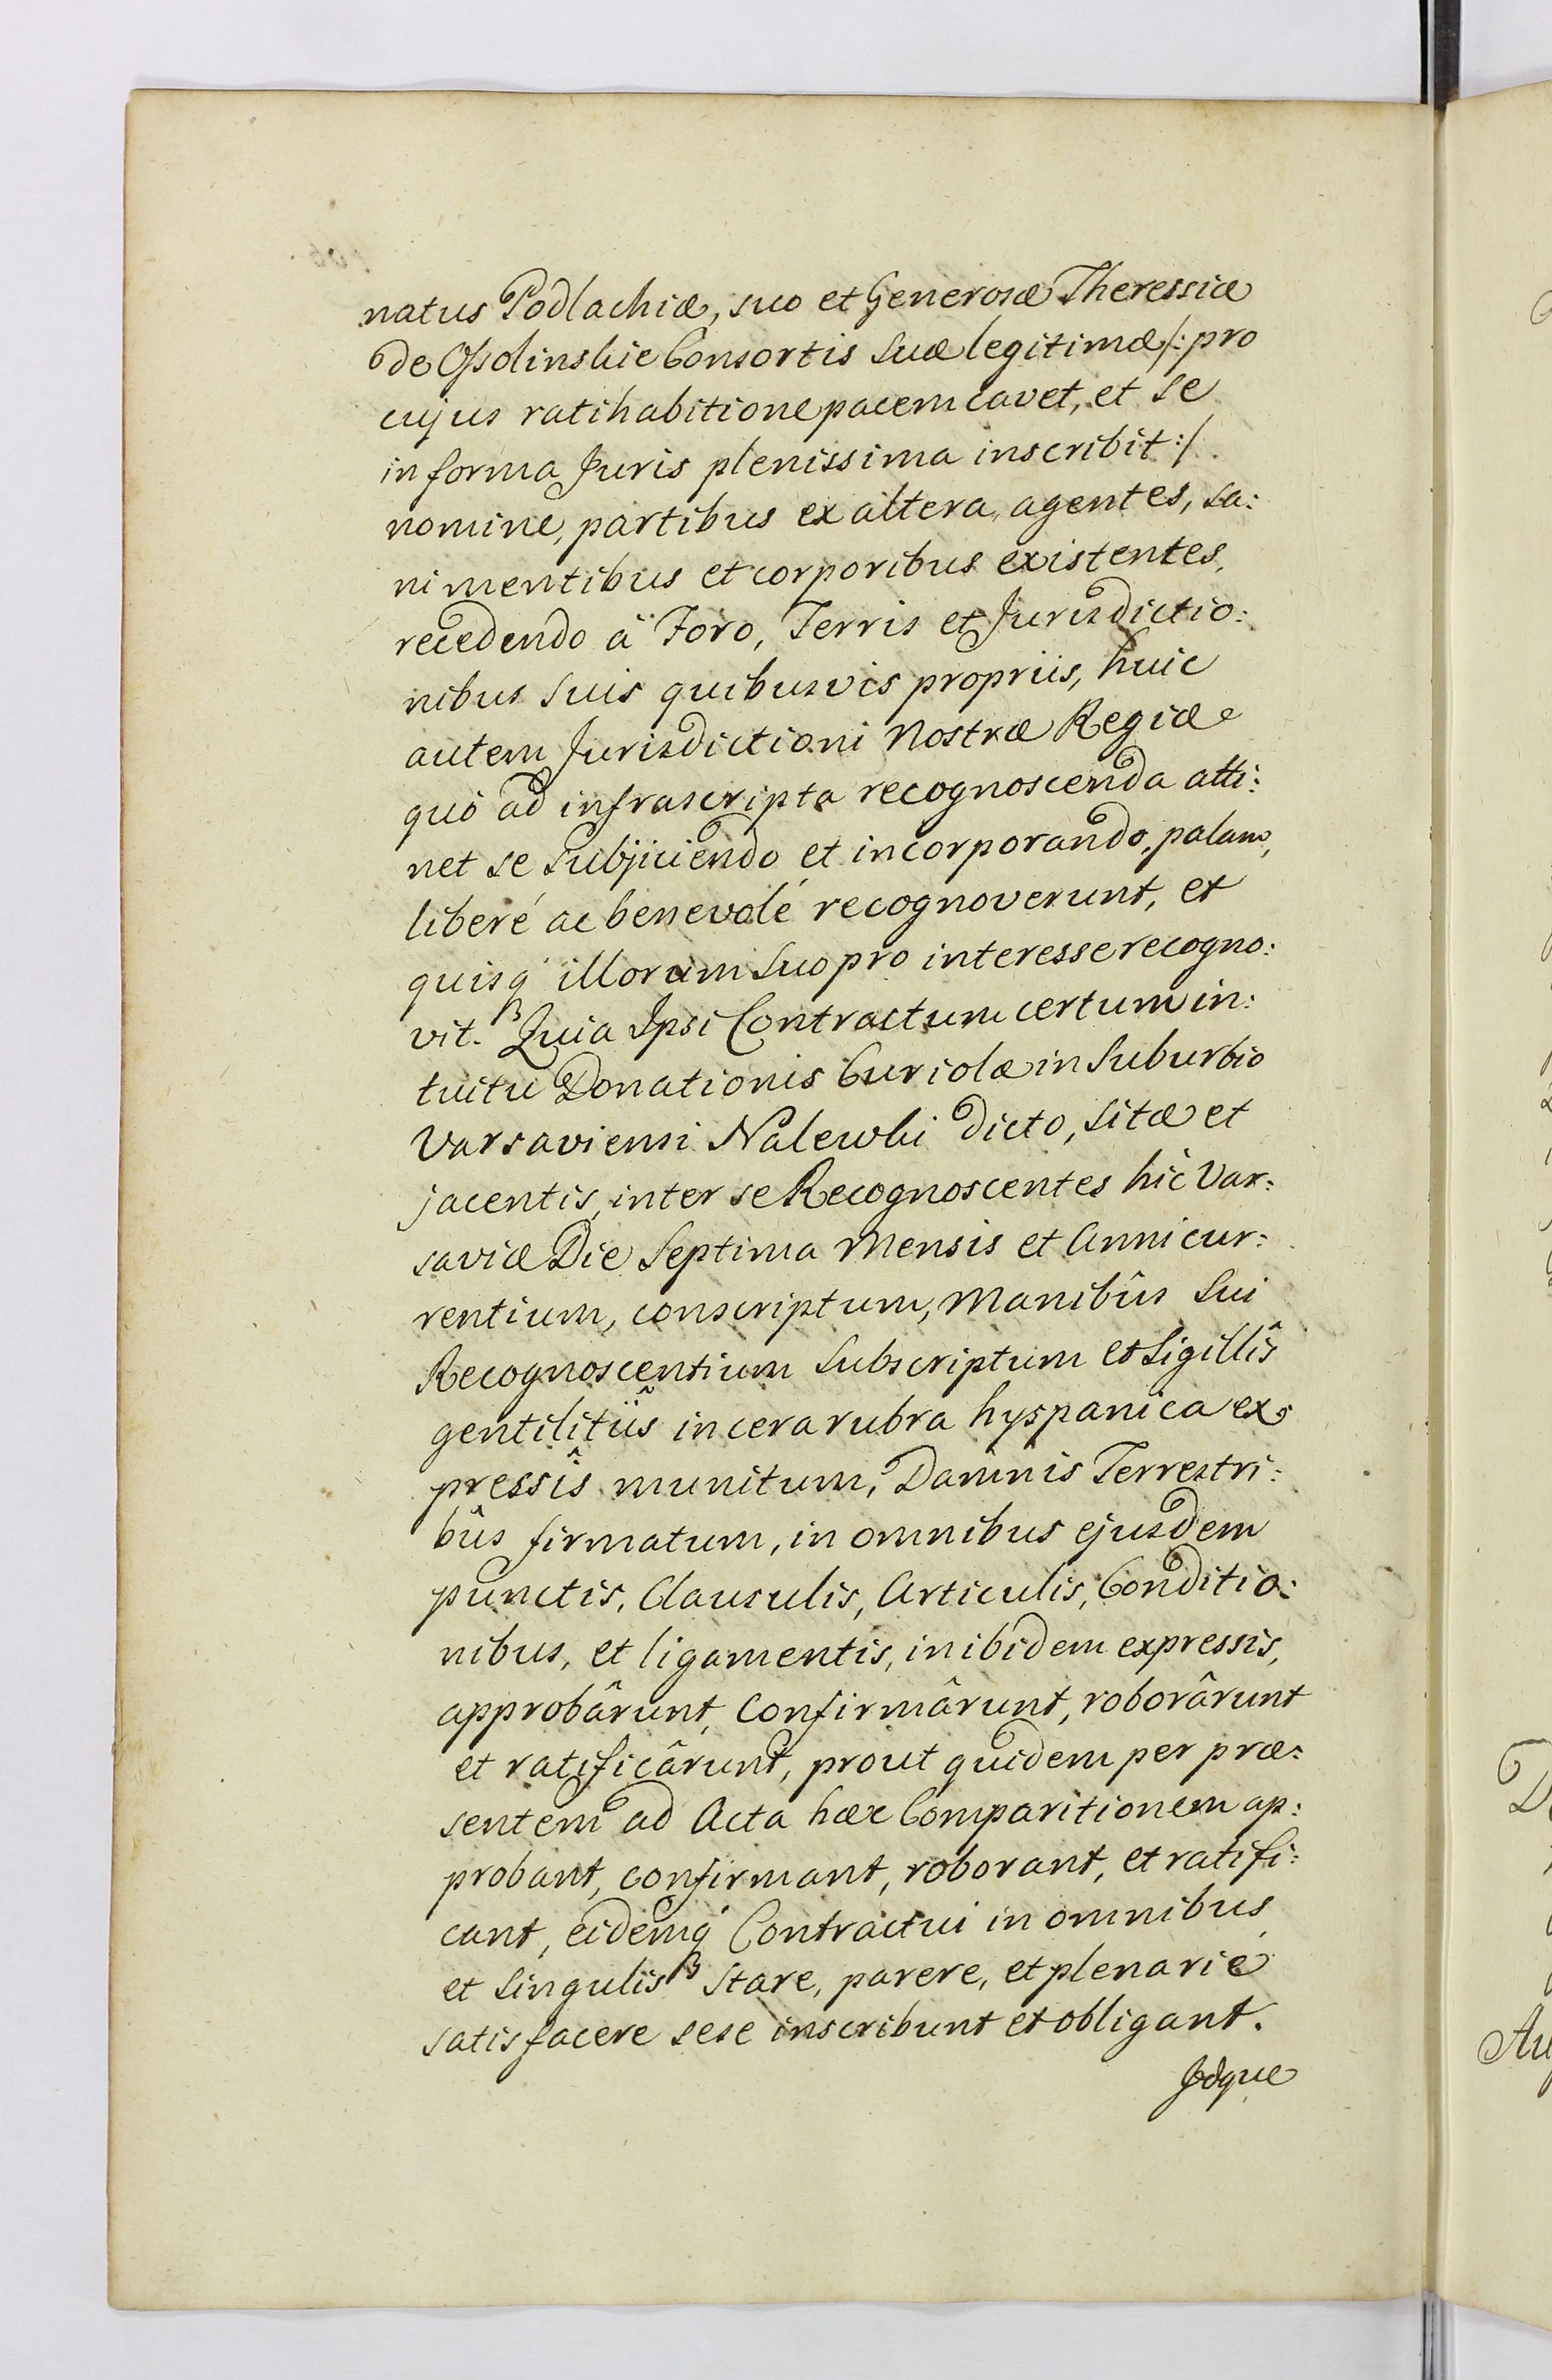 natus Podlachiæ, suo et Generosæ Theressiæ
de Ossolinskie Consortis suæ legitimæ /: pro
cujus ratihabitione pacem cavet, et se
in forma Juris plenissima inscribit :/
nomine, partibus ex altera, agentes, sa:
ni mentibus et corporibus existentes,
recedendo à Foro, Terris et Jurisdictio:
nibus suis quibusvis propriis, huic
autem Jurisdictioni Nostræ Regiæ
quò ad infrascripta recognoscenda atti:
net se subjiciendo et incorporando, palam,
liberé ac benevolé recognoverunt, et
quisq' illorum suo pro interesse recogno:
vit. Quia Ipsi Contractum certum in:
tuitu Donationis Curiolæ in Suburbio
Varsaviensi Nalewki dicto, sitæ et
jacentis, inter se Recognoscentes hic Var:
saviæ Die Septima Mensis et Anni cur:
rentium, conscriptum, Manibûs sui
Recognoscentium subscriptum et Sigillîs
gentilitiîs in cera rubra hyspanica ex:
pressîs munitum, Damnis Terrestri:
bûs firmatum, in omnibus ejusdem
punctis, Clausulis, Articulis, Conditio:
nibus, et ligamentis, inibidem expressis,
approbârunt, Confirmârunt, roborârunt
et ratificârunt, prout quidem per præ:
sentem ad Acta hæc Comparitionem ap:
probant, confirmant, roborant, et ratifi:
cant, eidemq' Contractui in omnibus
et singulis stare, parere, et plenarié
satisfacere sese inscribunt et obligant.
Idque